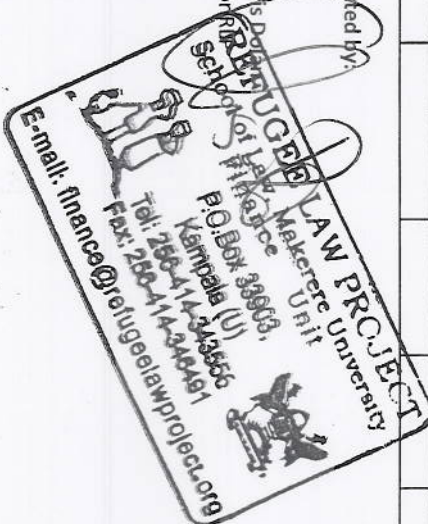 ted by:
REFUGEE LAW PROJECT
School of Law, Makerere University
Finance Unit
P.O.Box 33903,
Kampala (U)
Tel: 256-414-343556
Fax: 256-414-346491
E-mail: finance@refugeelawproject.org